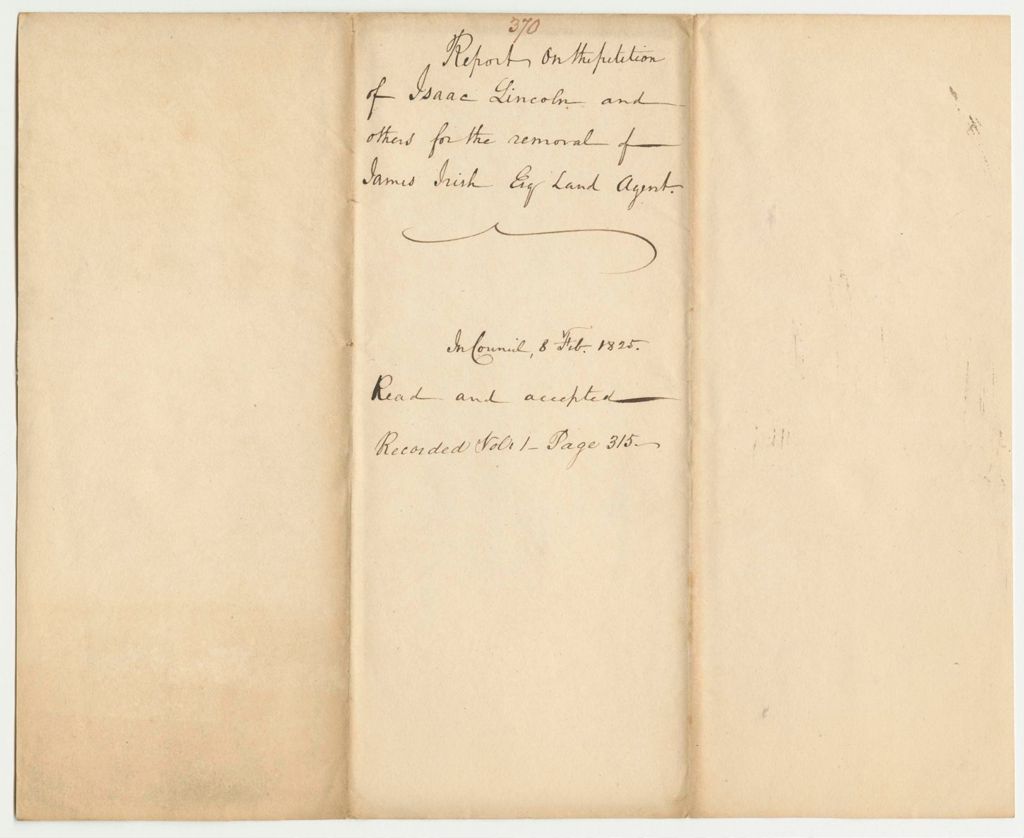 370
Report On the petition
of Isaac Lincoln and
others for the removal of
James Irish Esq Land Agent.
In Council, 8 Feb. 1825.
Read and accepted
Recorded Vol. 1 - Page 315.